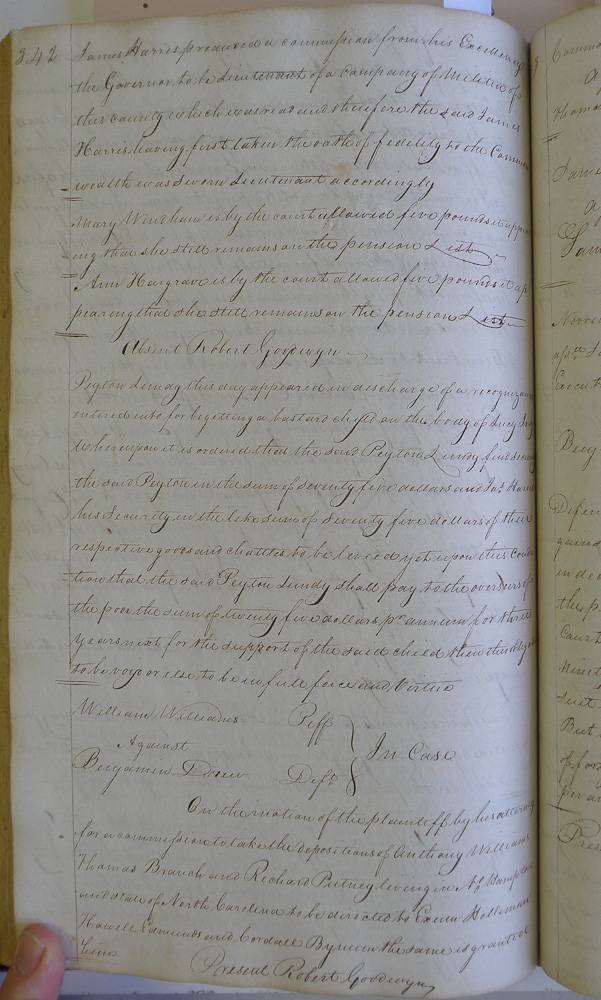 342
James Harris produced a commission from his Excellency
the Governor to be Lieutenant of a Company of Militia of
this County which was read and therefore the said James
Harris having first taken the oath of fidelity to the Common
wealth was sworn Lieutenant accordingly
Mary Windham is by the court allowed five pounds it appear
ing that she still remains on the pension List
Ann Hargrave is by the court allowed five pounds it ap
pearing that she still remains on the pension List
Absent Robert Goodwyn
Peyton Lundy this day appeared in discharge of a recognizance
entered into for begetting a bastard child on the body of Lucy
Whereupon it is ordered that the said Peyton Lundy find security
the said Peyton in the sum of seventy five dollars and Jas. Harris
his Security in the like sum of seventy five dollars of their
respective goods and chattles to be levied yet upon this condi
tion that the said Peyton Lundy shall pay to the overseers of
the poor the sum of twenty five dollars pr annum for three
years next for the support of the said child then this
to be void or else to be in full force and Virtue
William Williams Plff
Against
Benjamin Drew Deft
In Case
On the motion of the plaintiff by his attorney
for a commission to take the depositions of Anthony Williams
Thomas Branch and Richard Putney living in No. Hampton
and state of North Carolina to be directed to Exum Holleman
Howell Edmunds and Cordall Bynum the same is granted
him
Present Robert Goodwyn